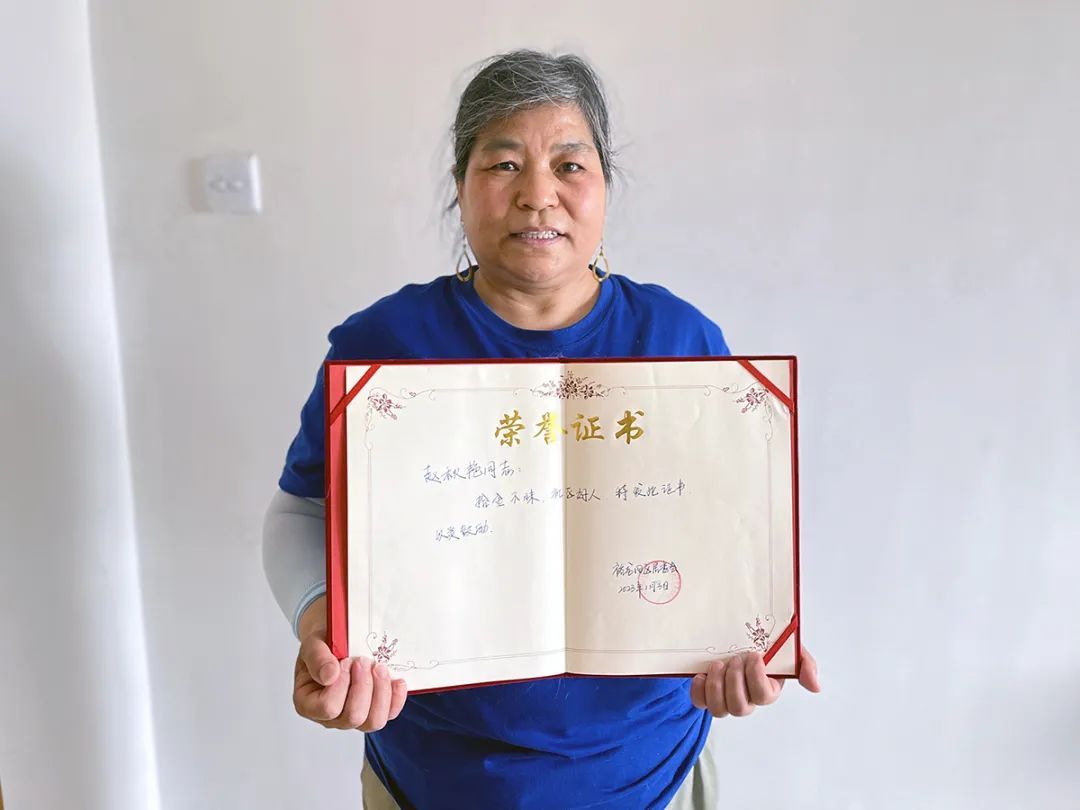 荣誉证书
赵秋艳同志：
拾金不昧，机区好人，特发此证书，
以资鼓励。
2023年1月3日